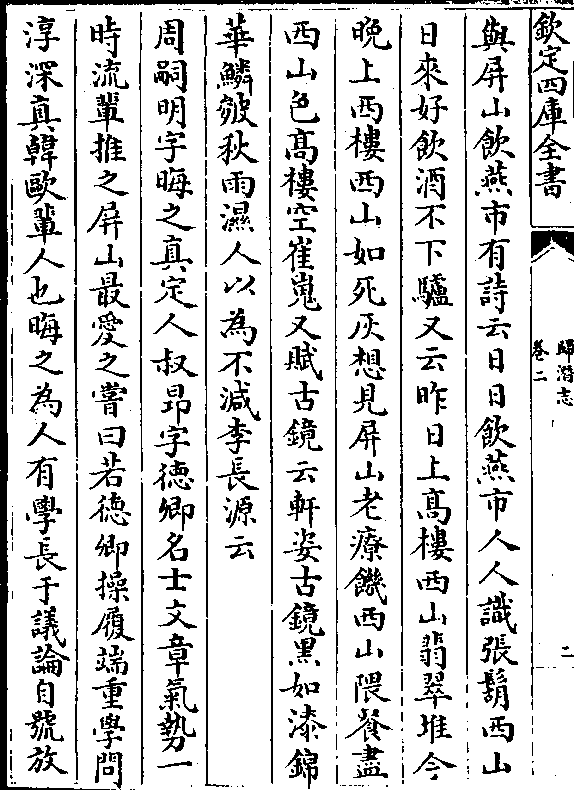 欽定四庫全書
歸潛志
卷二
二
與屏山飲燕市有詩云日日飲燕市人人識張鬍西山
日來好飲酒不下驢又云昨日上高樓西山翡翠堆今
晚上西樓西山如死灰想見屏山老療饑西山隈餐盡
西山色高樓空崔嵬又賦古鏡云軒姿古鏡黑如漆錦
華鱗皴秋雨濕人以為不減李長源云
周嗣明字晦之真定人叔昂字德卿名士文章氣勢一
時流輩推之屏山最愛之嘗曰若德卿操履端重學問
淳深真韓歐輩人也晦之為人有學長于議論自號放